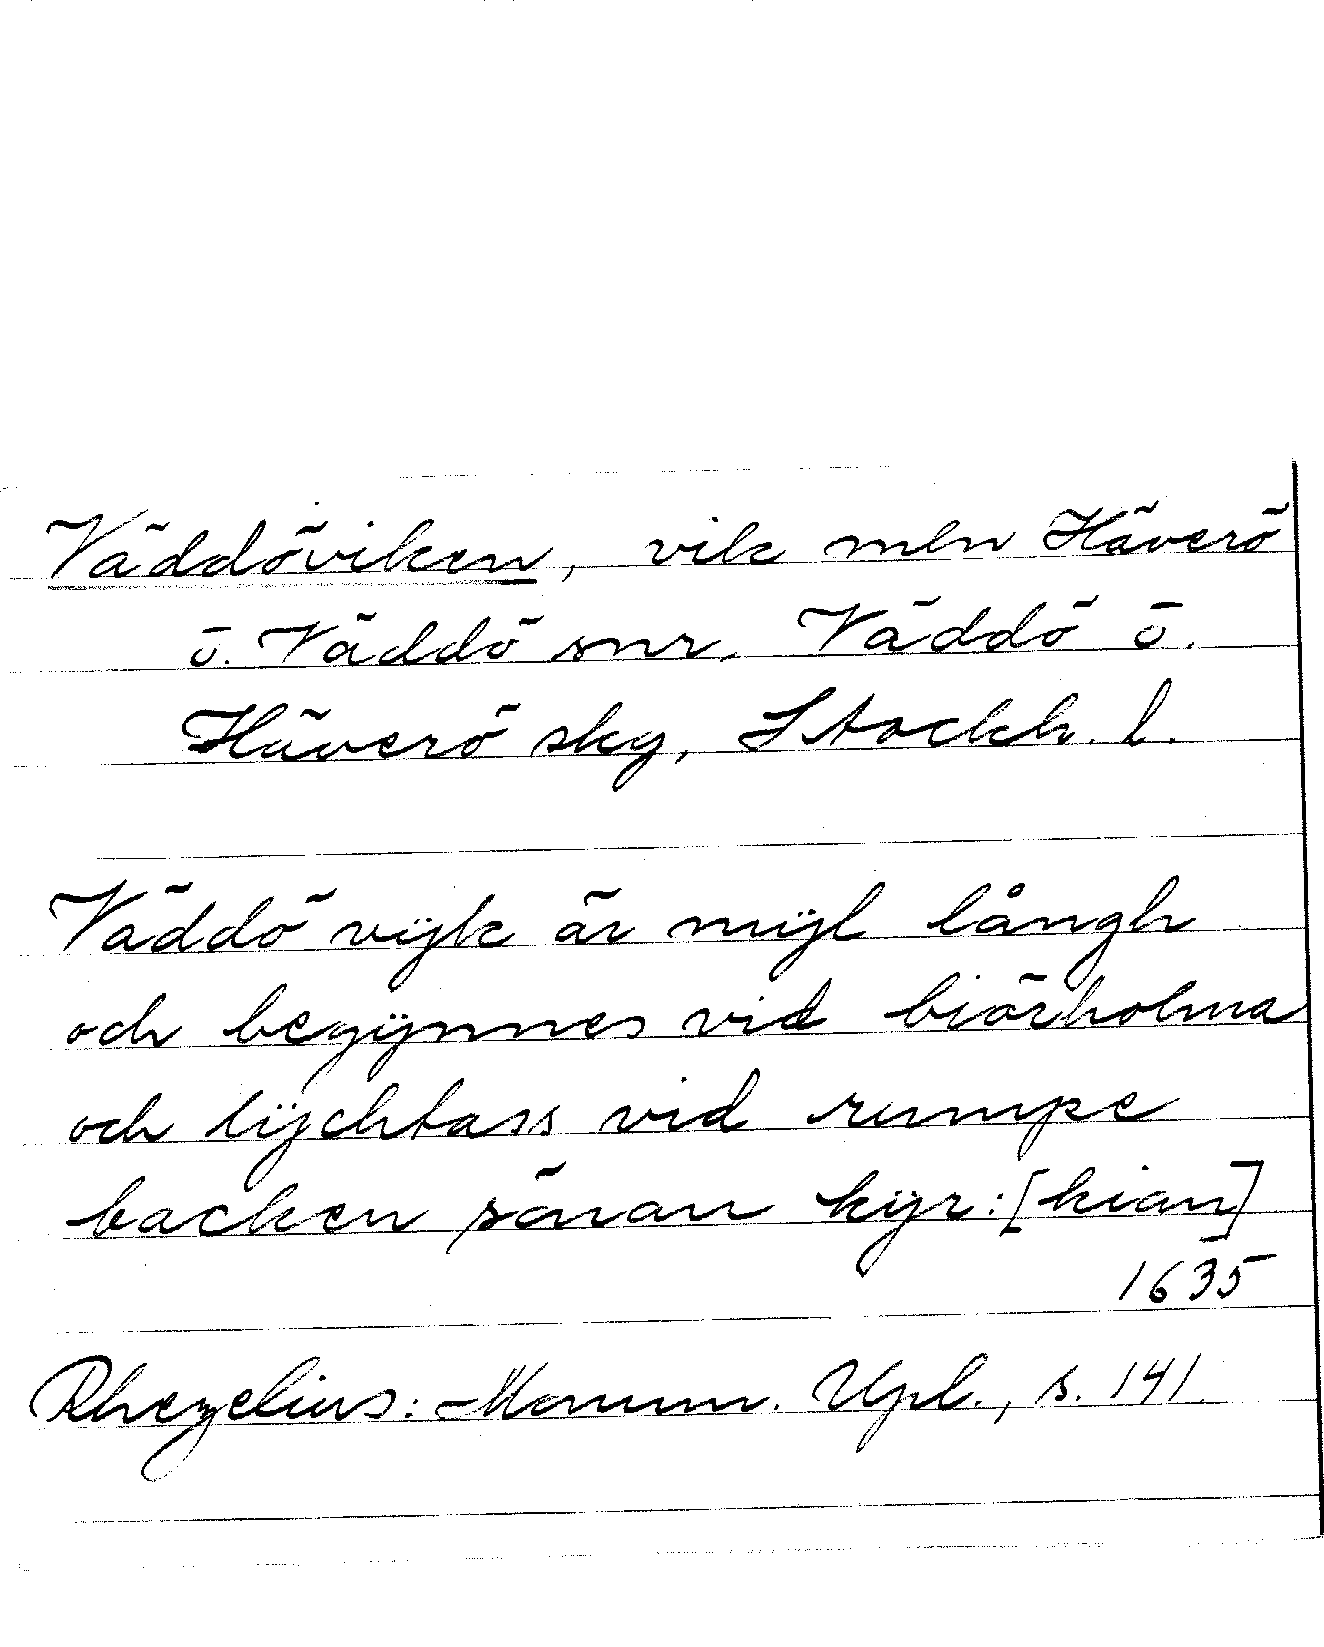 Väddöviken, vik mln Häverö
ö. Väddö snr, Väddö ö.
Häverö skg, Stockh. l.
Väddö vijk är mijl långh
och begÿnnes vid biörholma
och lÿchtass vid rumpe
backen sönan kÿr:[kian]
1635
Rhezelius: Monum. Upl., s. 141.